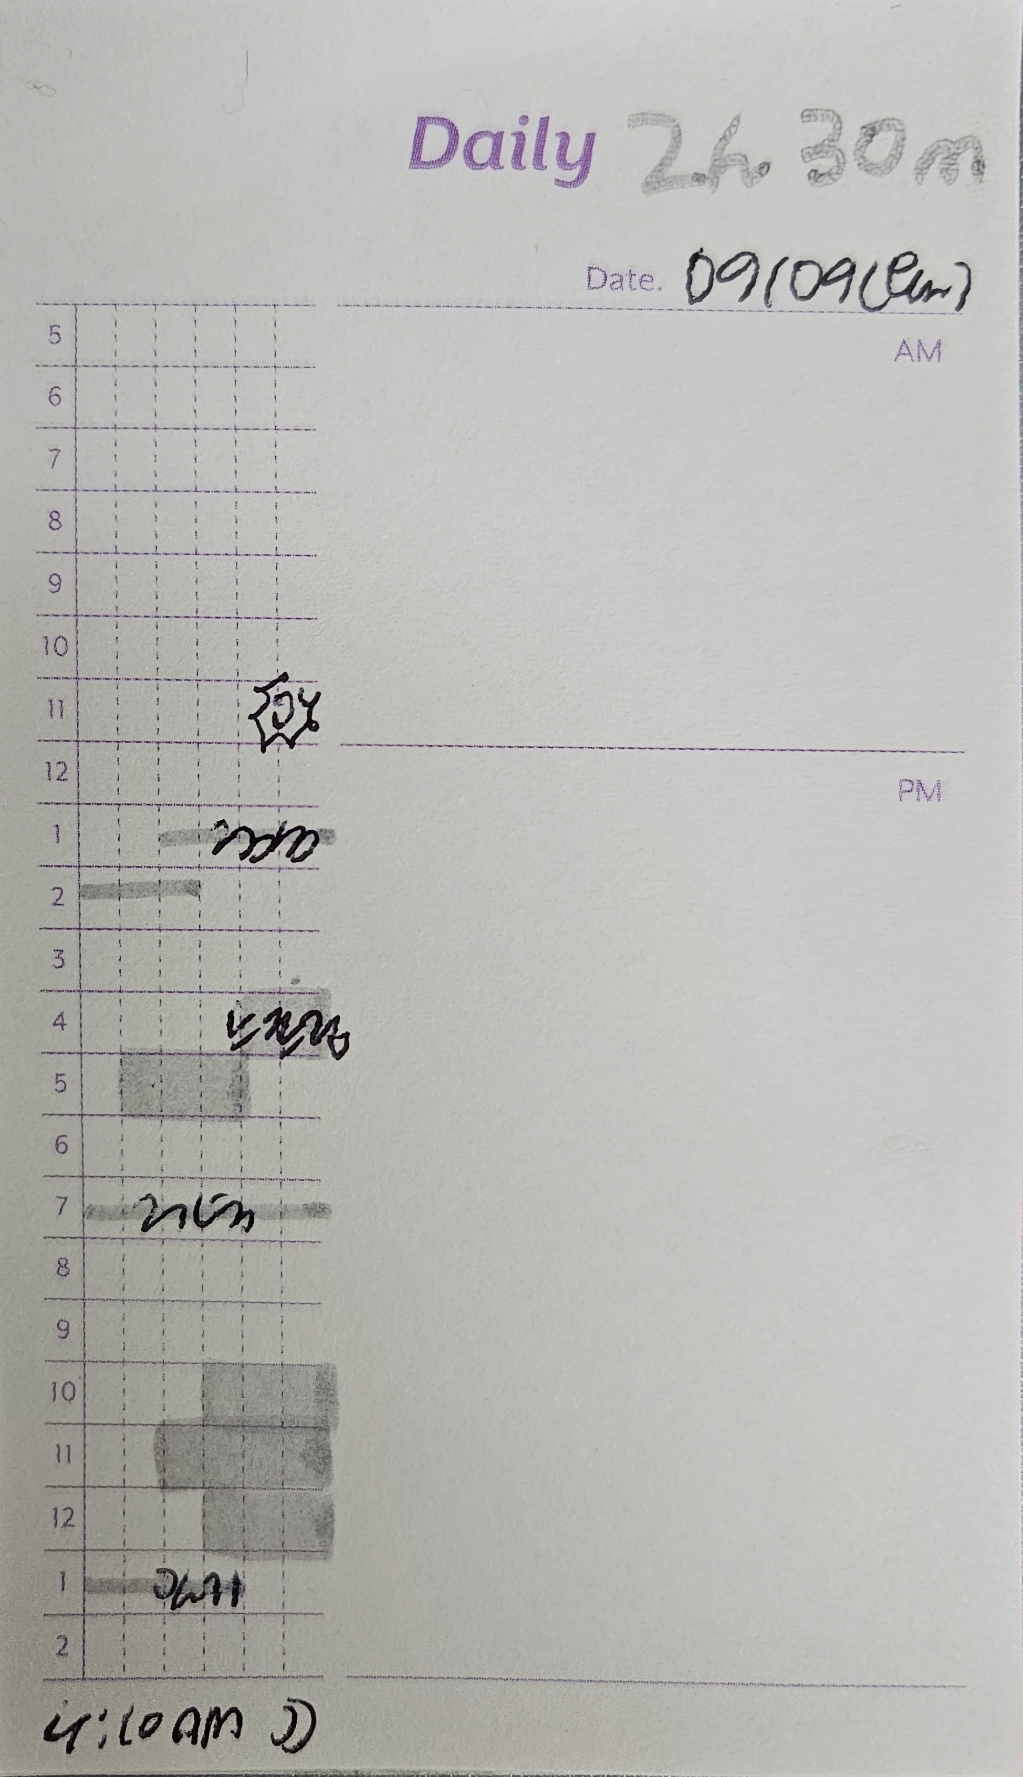 Daily 2h 30m
Date. 09/09
5
AM
6
7
8
9
10
11
12
PM
1
2
3
4
5
6
7
8
9
10
11
12
1
2
4:10 AM